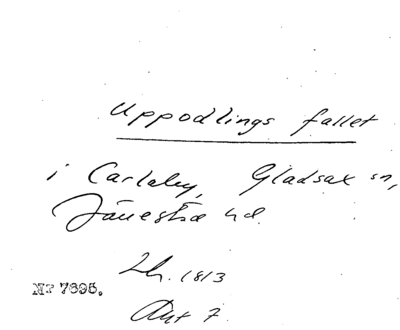 Uppodlings fallet
i Carlaby, Gladsax sn,
Järrestad hd.
Lh. 1813
Nr 7695.
Akt 7